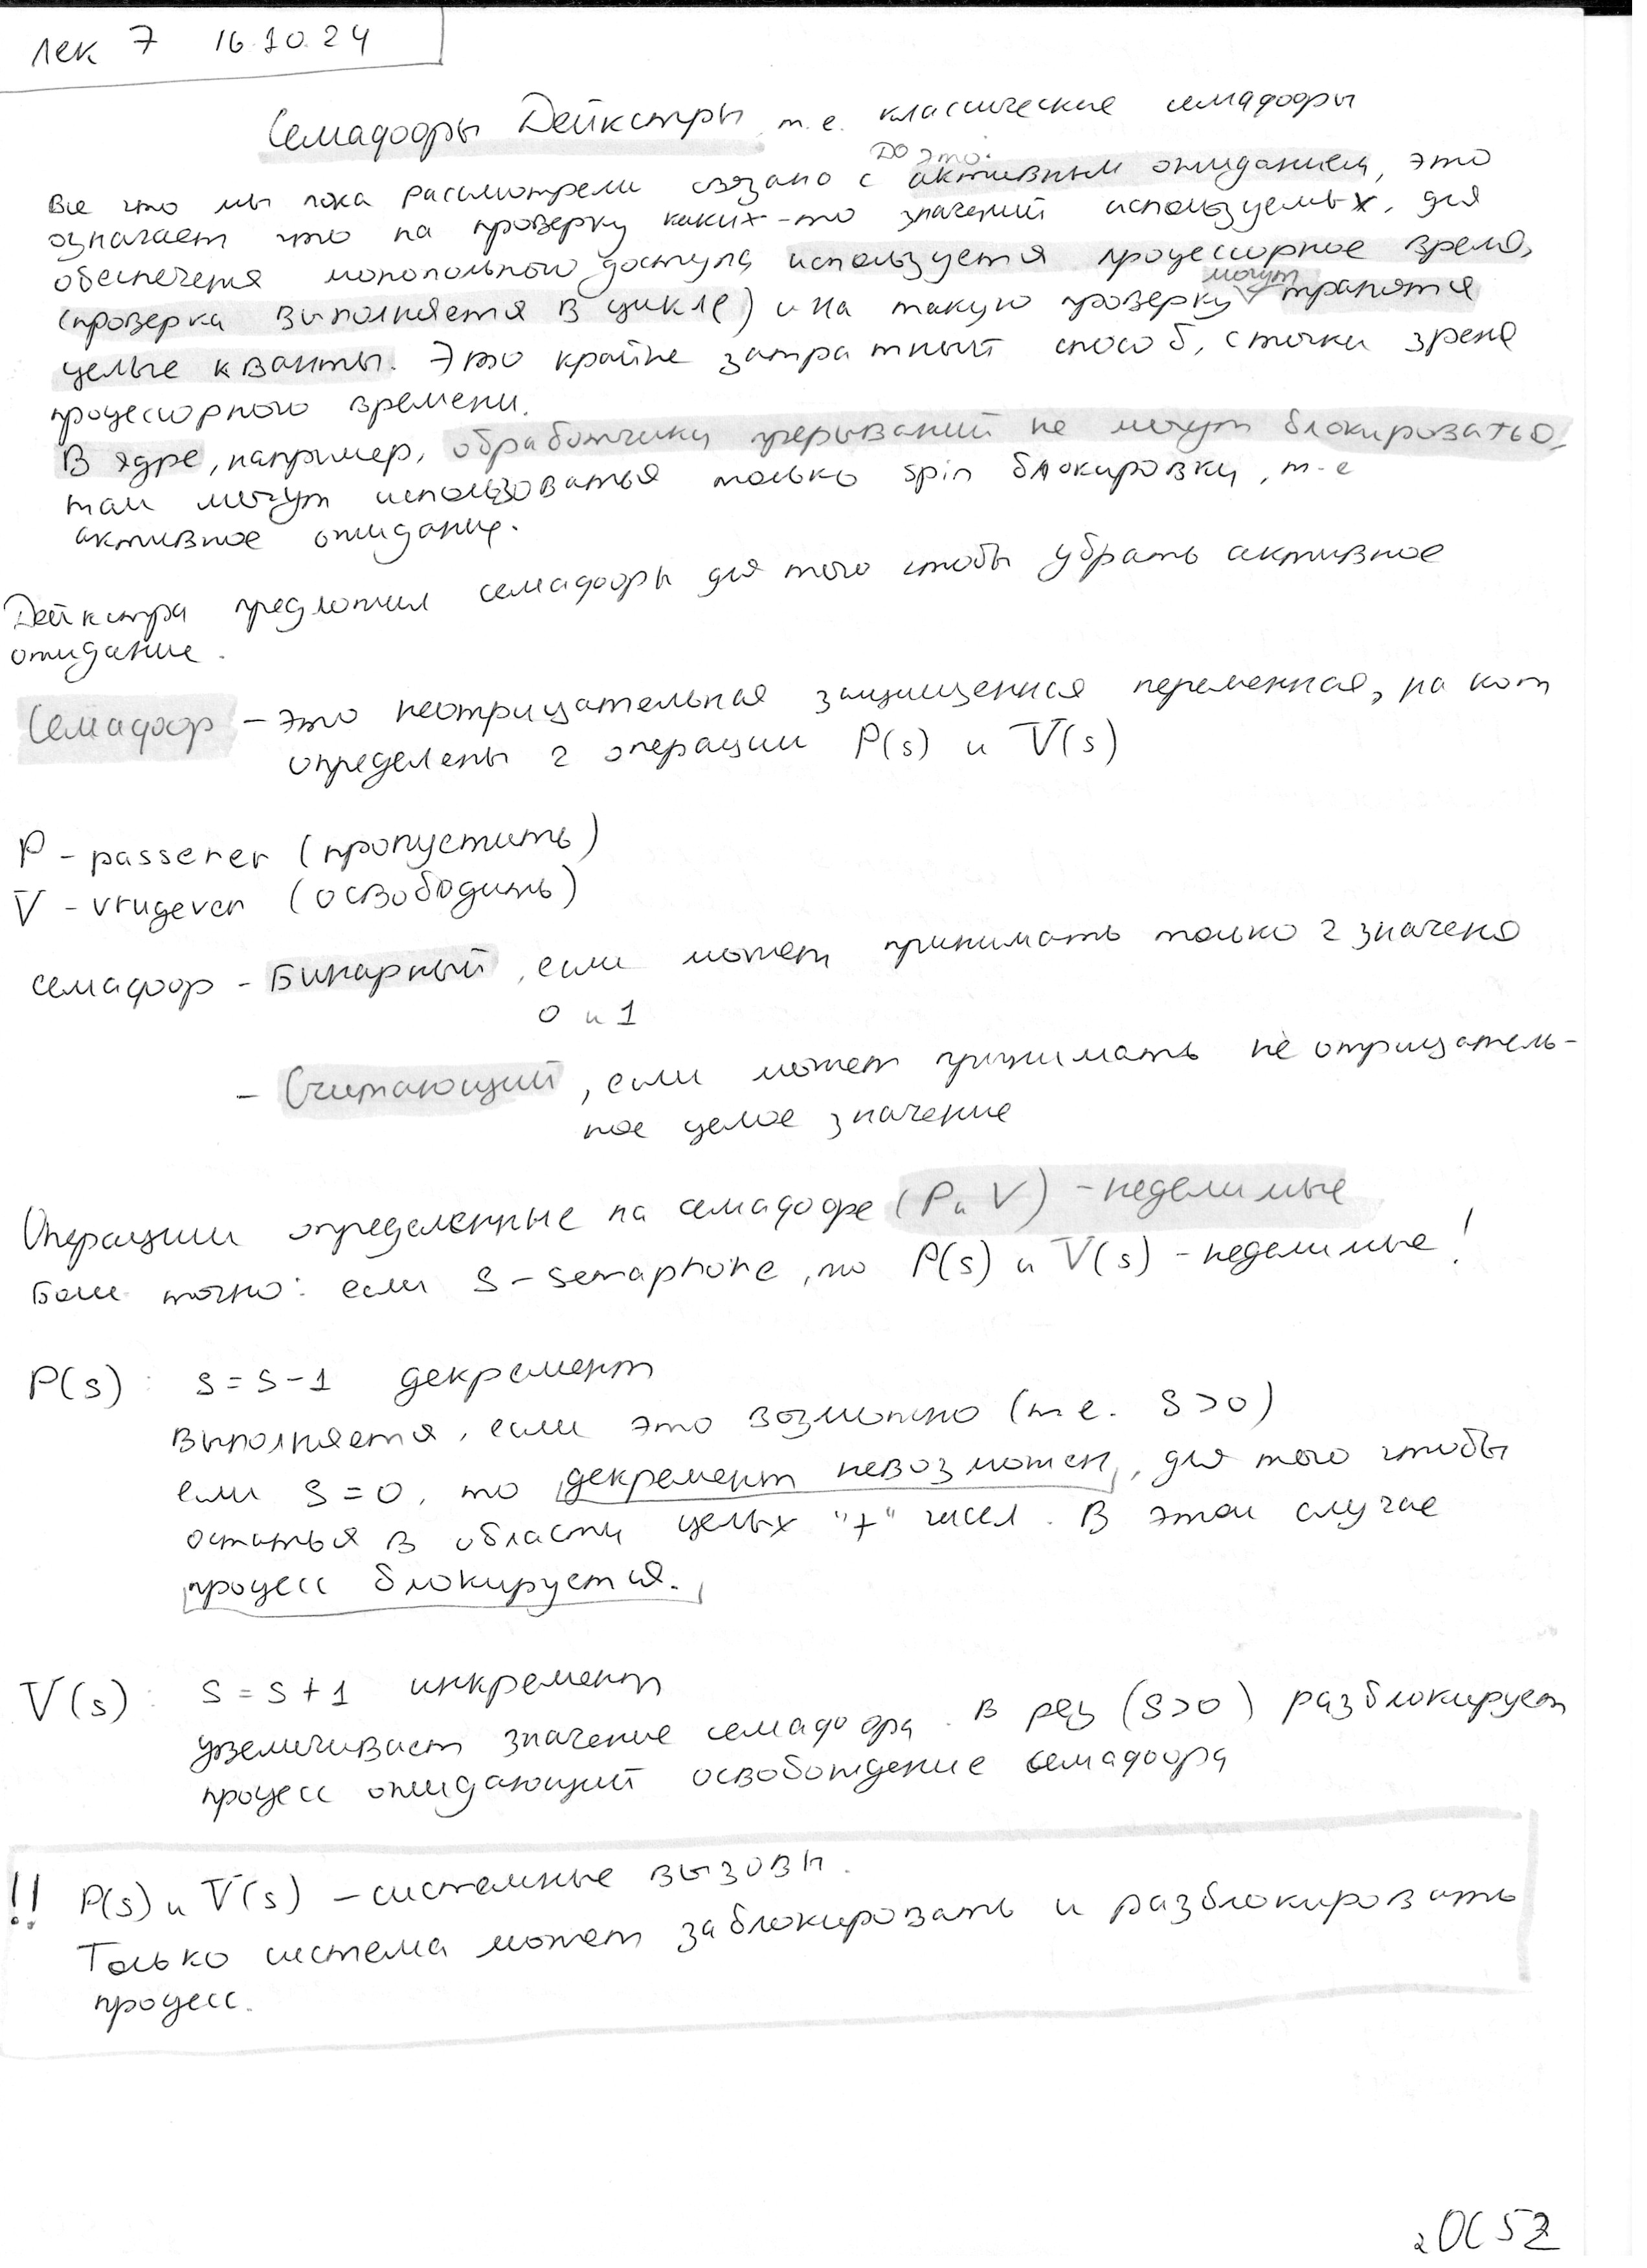 лек 7 16.10.24
Семафоры Дейкстры, т.е. классические семафоры
до это.
Все что мы пока рассмотрели связано с активным ожиданием, это
означает что на проверку каких-то значений используемых, для
обеспечения монопольного доступа, используется процессорное время,
(проверка выполняется в цикле) и на такую проверку могут тратится
целые кванты. Это крайне затратный способ, с точки зрения
процессорного времени.
В ядре, например, обработчики прерываний не могут блокироваться,
там могут использоваться только spin блокировки, т.е
активное ожидание.
Дейкстра предложил семафоры для того чтобы убрать активное
ожидание.
Семафор – это неотрицательная защищенная переменная, на кот
определены 2 операции P(s) и V(s)
P – passeren (пропустить)
V – vrugeven (освободить)
семафор – Бинарный, если может принимать только 2 значения
0 и 1
– Считающий, если может принимать не отрицатель-
ное целое значение
Операции определенные на семафоре (P и V) – неделимые
Более точно: если S – semaphore, то P(s) и V(s) – неделимые!
P(s): s = s - 1 декремент
выполняется, если это возможно (т е. S > 0)
если S = 0, то декремент невозможен, для того чтобы
остаться в области целых "+" чисел. В этом случае
процесс блокируется.
V(s): s = s + 1 инкремент
увеличивает значение семафора. В рез (S>0) разблокирует
процесс ожидающий освобождение семафора
!! P(s) и V(s) – системные вызовы.
Только система может заблокировать и разблокировать
процесс.
ОС 52